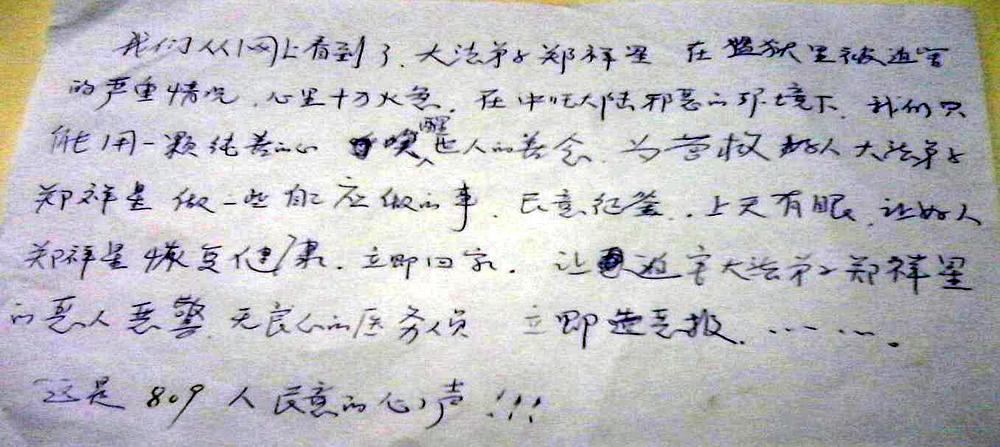 我们从网上看到了、大法弟子郑祥星 在监狱里被迫害
的严重情况、心里十万火急、在中共大陆邪恶的环境下、我们只
能用一颗纯善的心 唤醒世人的善念、为营救好人大法弟子
郑祥星做一些自己应做的事、民意征签、上天有眼、让好人
郑祥星恢复健康、立即回家、让迫害大法弟子郑祥星
的恶人恶警、无良心的医务人员 立即遭恶报、……。
这是809人民意的心声!!!